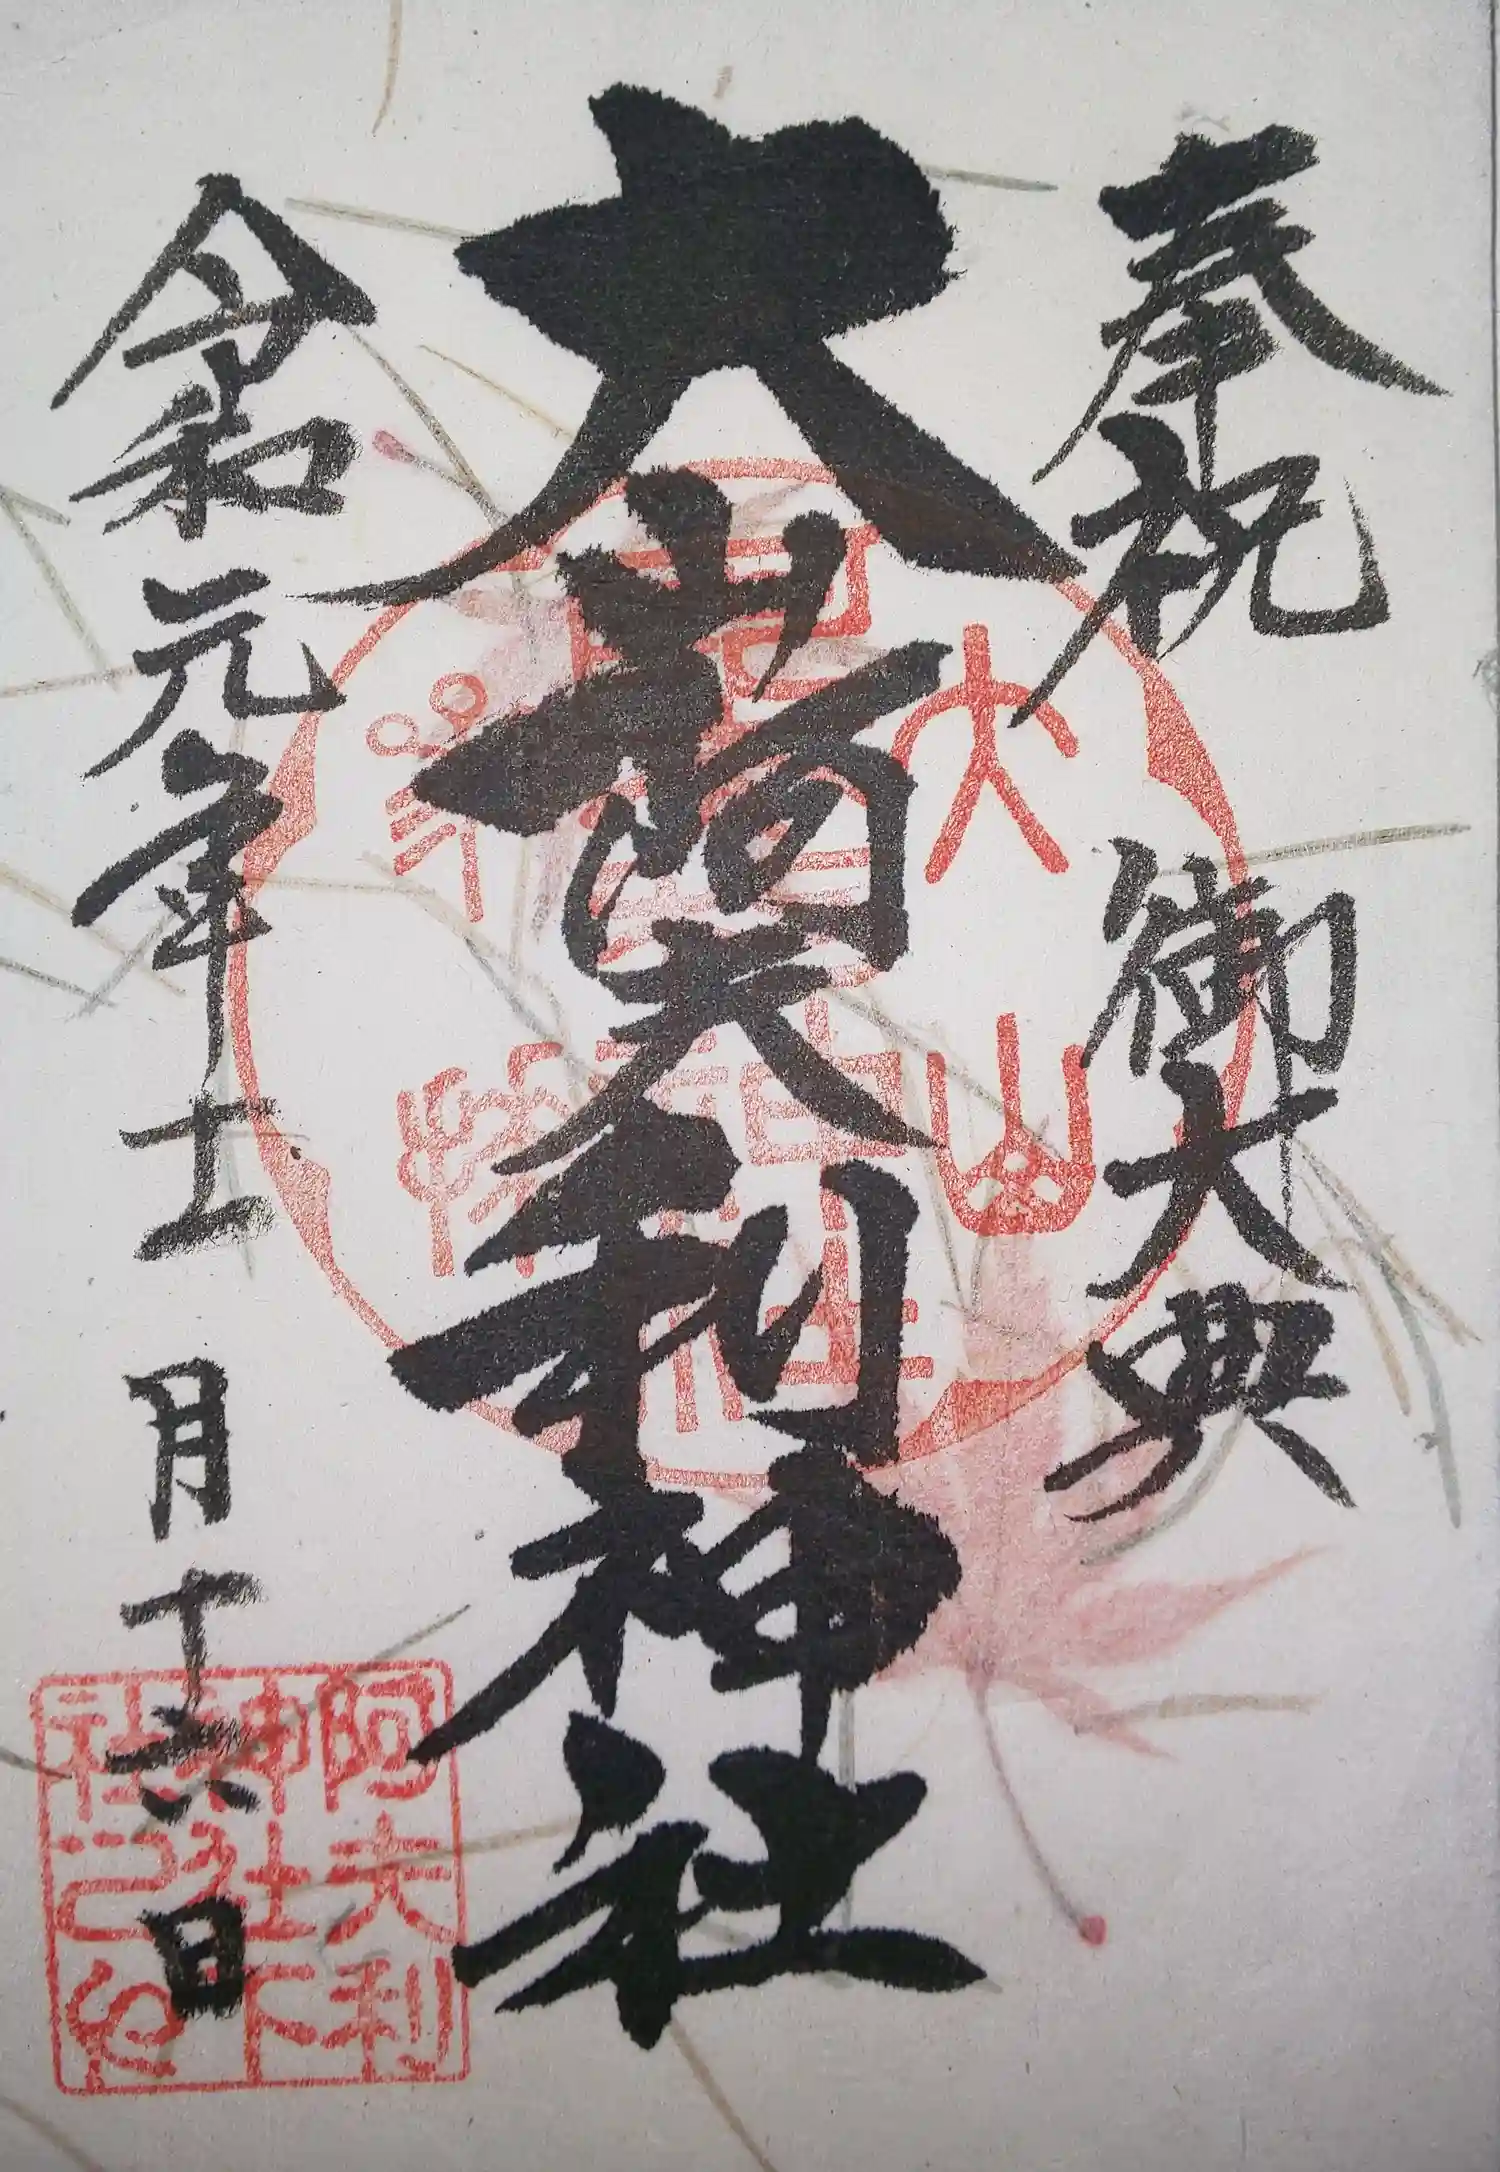 奉祝 御大典
大山阿夫利神社
令和元年十一月十六日
大山
阿夫利
神社下
社之印